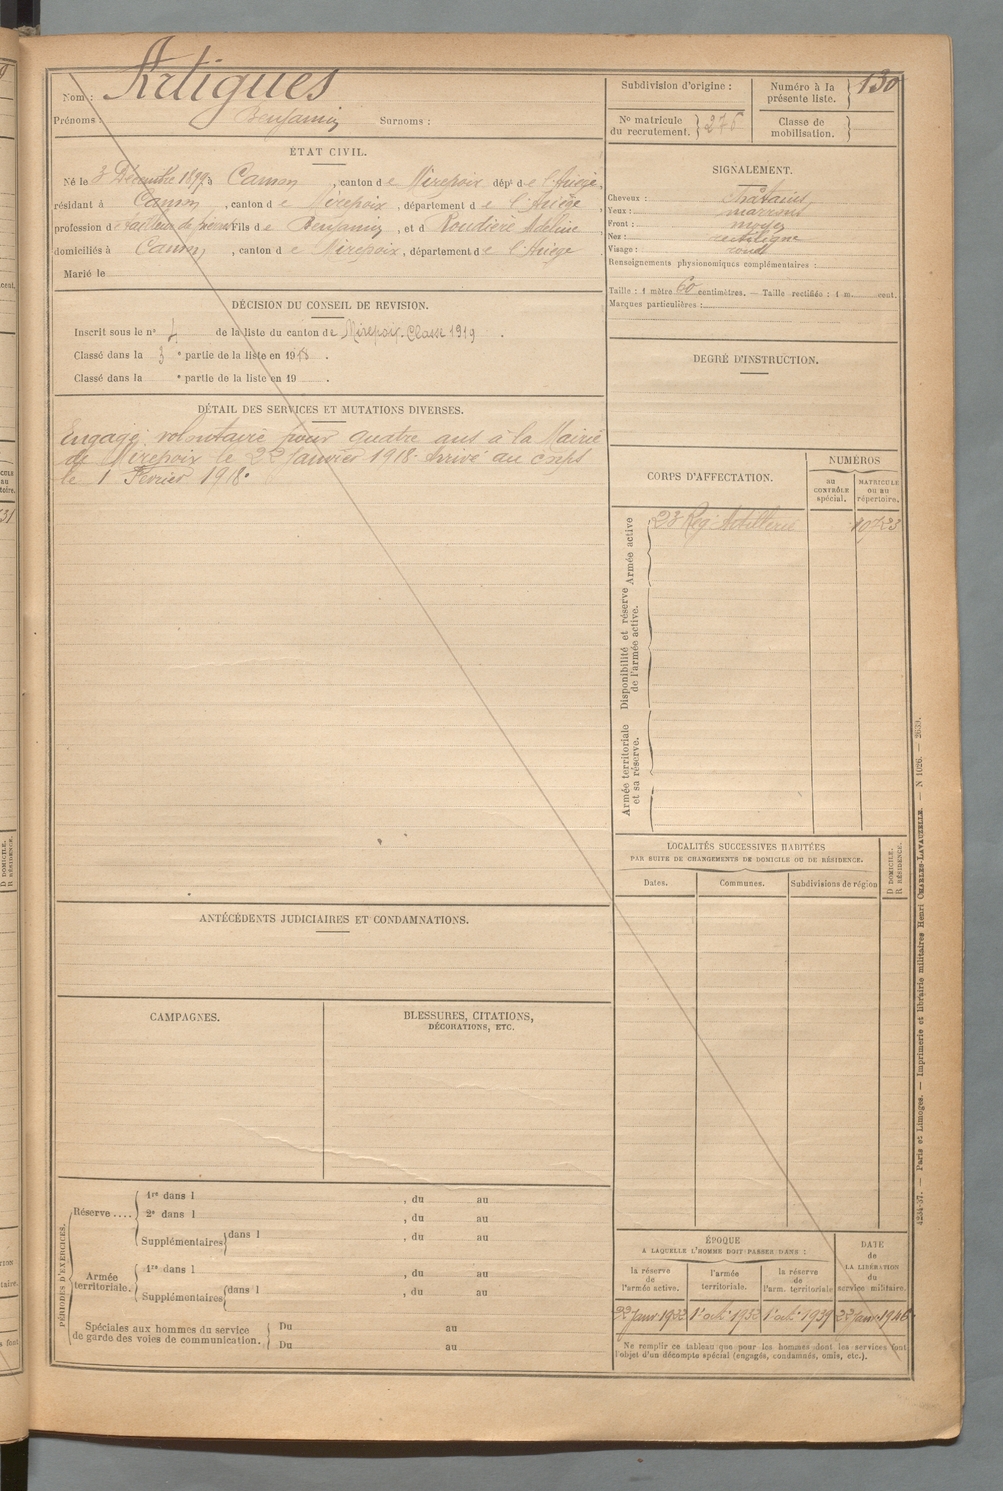 Nom : Artigues
Prénoms : Benjamin Surnoms :
ÉTAT CIVIL.
Né le 3 Décembre 1899 à Camon, canton de Mirepoix dépt de l'Ariège,
résidant à Camon, canton de Mirepoix, département de l'Ariège,
profession de tailleur de pierres Fils de Benjamin, et d Roudière Adeline,
domiciliés à Camon, canton de Mirepoix, département de l'Ariège
Marié le
DÉCISION DU CONSEIL DE REVISION.
Inscrit sous le n° 4 de la liste du canton de Mirepoix. Classe 1919.
Classé dans la 3 e partie de la liste en 1918.
Classé dans la e partie de la liste en 19 .
DÉTAIL DES SERVICES ET MUTATIONS DIVERSES.
Engagé volontaire pour quatre ans à la Mairie
de Mirepoix le 22 Janvier 1918. Arrivé au corps
le 1 Février 1918.
ANTÉCÉDENTS JUDICIAIRES ET CONDAMNATIONS.
CAMPAGNES.
BLESSURES, CITATIONS,
DÉCORATIONS, ETC.
PÉRIODES D'EXERCICES.
Réserve ....
1re dans l , du au
2e dans l , du au
Supplémentaires dans l , du au
Armée
territoriale.
1re dans l , du au
Supplémentaires dans l , du au
Spéciales aux hommes du service
de garde des voies de communication.
Du au
Du au
Subdivision d'origine :
Numéro à la
présente liste. 130
No matricule
du recrutement.
Classe de
mobilisation.
SIGNALEMENT.
Cheveux : châtains
Yeux : marrons
Front : moyen
Nez : rectiligne
Visage : rond
Renseignements physionomiques complémentaires :
Taille : 1 mètre 60 centimètres. — Taille rectifiée : 1 m. cent.
Marques particulières :
DEGRÉ D'INSTRUCTION.
CORPS D'AFFECTATION.
NUMÉROS
au
CONTRÔLE
spécial.
MATRICULE
OU AU
répertoire.
Armée active
23e Rég. Artillerie 10723
Disponibilité et réserve
de l'armée active.
Armée territoriale
et sa réserve.
LOCALITÉS SUCCESSIVES HABITÉES
PAR SUITE DE CHANGEMENTS DE DOMICILE OU DE RÉSIDENCE.
D DOMICILE.
R RÉSIDENCE.
Dates. Communes. Subdivisions de région
ÉPOQUE
A LAQUELLE L'HOMME DOIT PASSER DANS :
DATE
de
LA LIBÉRATION
du
service militaire.
la réserve
de
l'armée active.
l'armée
territoriale.
la réserve
de
l'arm. territoriale
22 Janv. 1922 1er oct. 1933 1er oct. 1939 22 Janv. 1946
Ne remplir ce tableau que pour les hommes dont les services font
l'objet d'un décompte spécial (engagés, condamnés, omis, etc.).
4234-37. — Paris et Limoges. — Imprimerie et librairie militaires Henri CHARLES-LAVAUZELLE. — N 1026. — 2639.